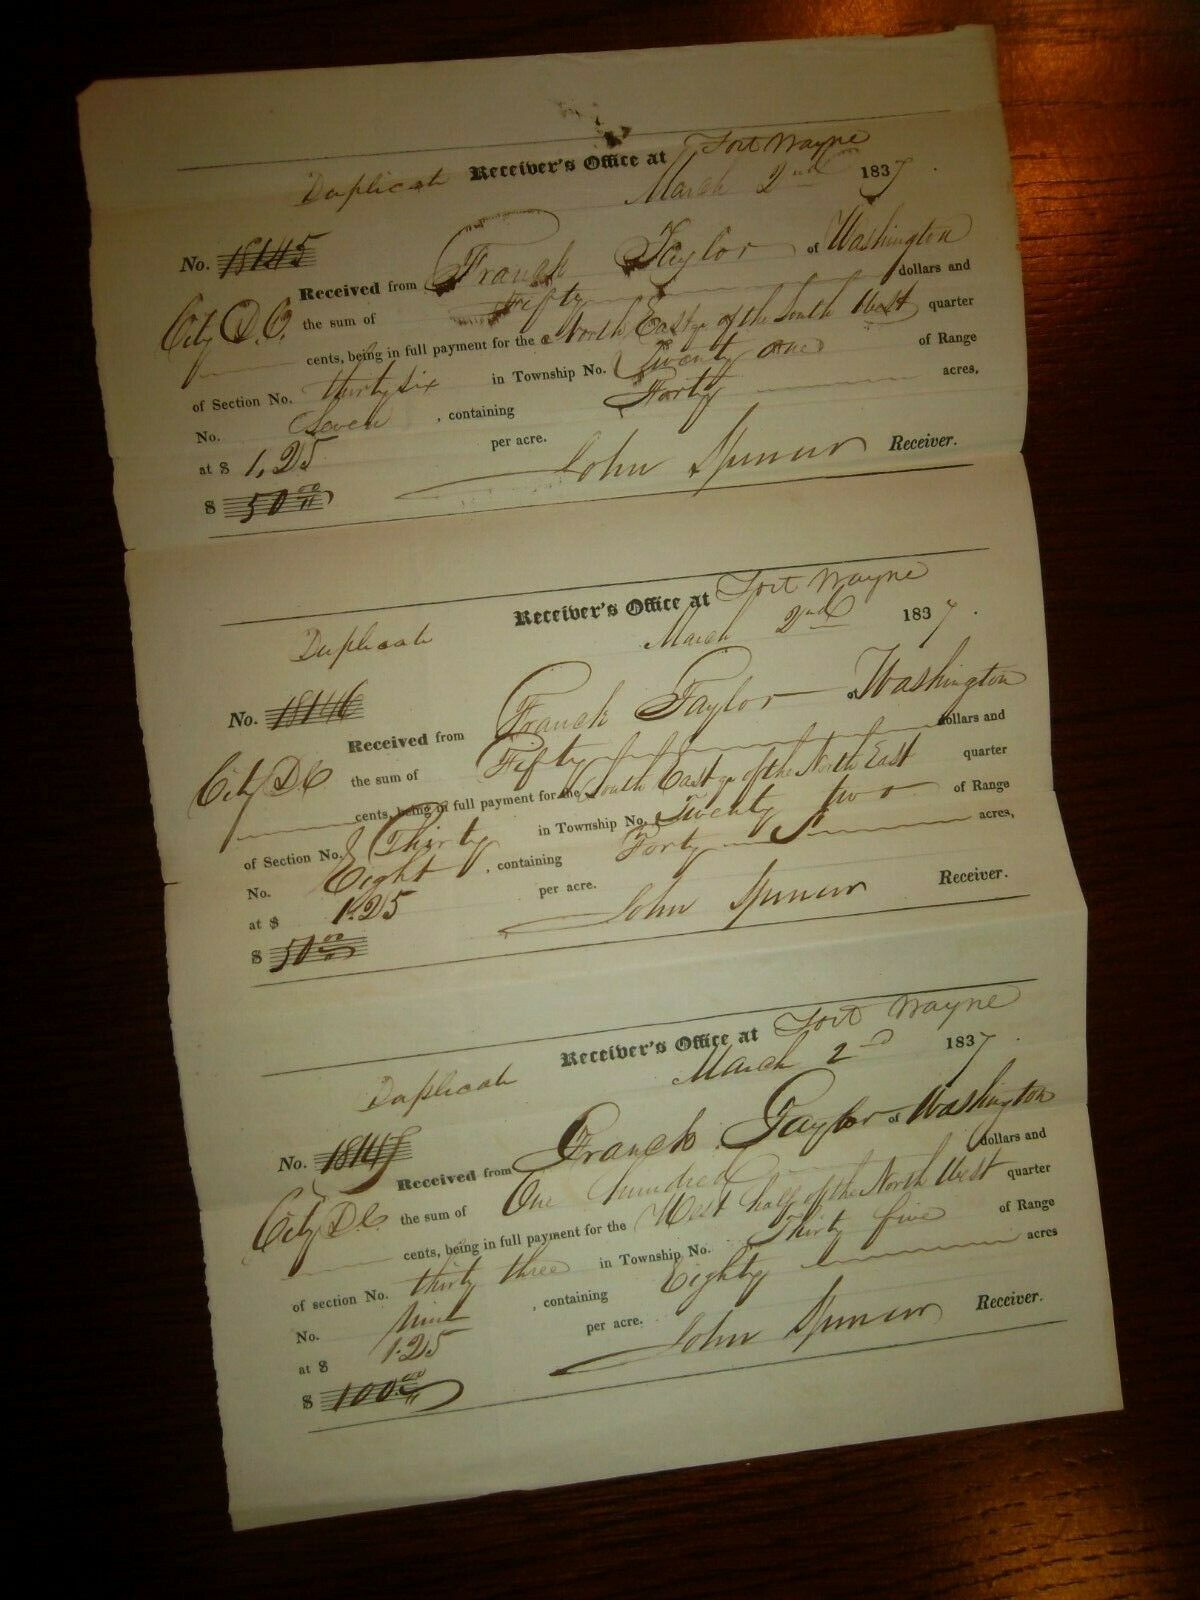 Receiver's Office at Fort Wayne
Duplicate March 2nd 1837.
No. 18145 Received from Franck Taylor of Washington
City D.C. the sum of Fifty dollars and
cents, being in full payment for the North East qr of the South West quarter
of Section No. thirty six in Township No. Twenty one of Range
No. Seven, containing Forty acres,
at $ 1,25 per acre.
$ 50.00 John Spencer Receiver.
Receiver's Office at Fort Wayne
Duplicate March 2nd 1837.
No. 18146 Received from Franck Taylor of Washington
City D C the sum of Fifty dollars and
cents, being in full payment for the South East qr of the North East quarter
of Section No. Thirty in Township No. Twenty two of Range
No. Eight, containing Forty acres,
at $ 1.25 per acre.
$ 50.00 John Spencer Receiver.
Receiver's Office at Fort Wayne
Duplicate March 2d 1837.
No. Received from Franck Taylor of Washington
City D.C. the sum of One hundred dollars and
cents, being in full payment for the West half of the North West quarter
of section No. thirty three in Township No. Thirty five of Range
No. Nine, containing Eighty acres
at $ 1.25 per acre.
$ 100.00 John Spencer Receiver.